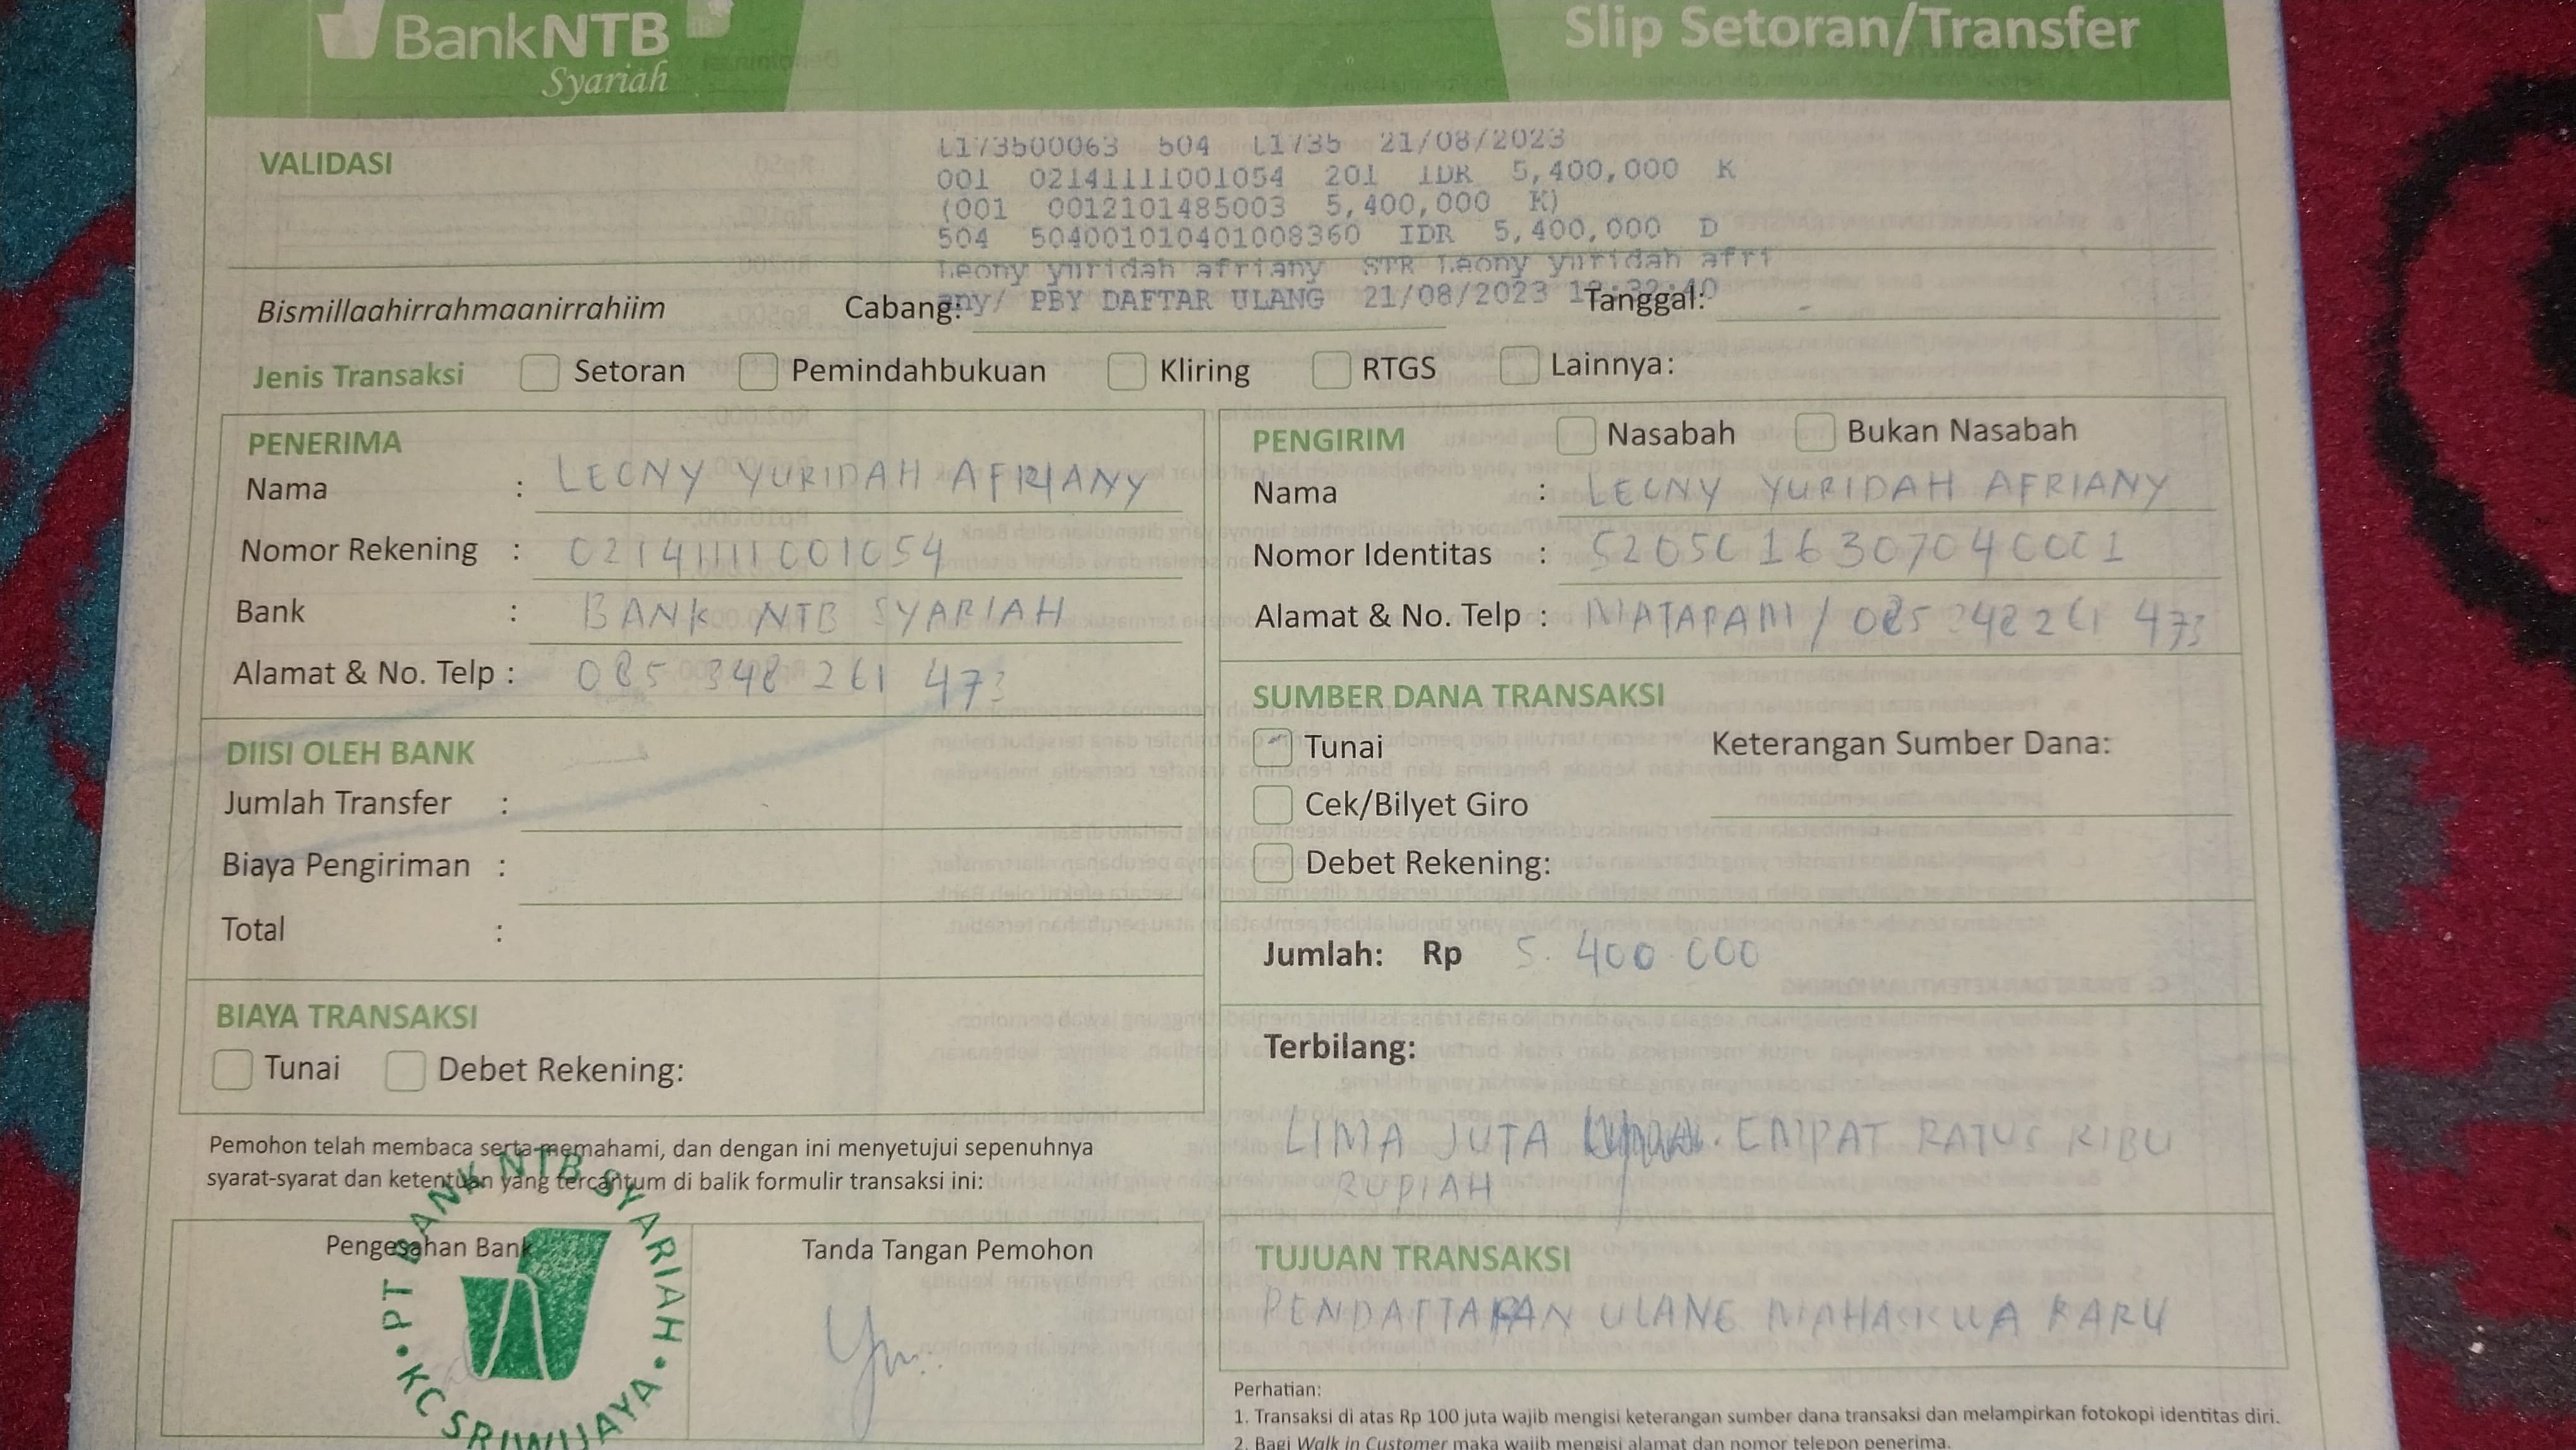 BankNTB
Syariah
Slip Setoran/Transfer
VALIDASI
L173500063 504 L1735 21/08/2023
001 02141111001054 201 IDR 5,400,000 K
(001 0012101485003 5,400,000 K)
504 504001010401008360 IDR 5,400,000 D
Leony yuridah afriany STR Leony yuridah afri
any/ PBY DAFTAR ULANG 21/08/2023
Bismillaahirrahmaanirrahiim Cabang: Tanggal:
Jenis Transaksi Setoran Pemindahbukuan Kliring RTGS Lainnya:
PENERIMA
Nama : LEONY YURIDAH AFRIANY
Nomor Rekening : 02141111001054
Bank : BANK NTB SYARIAH
Alamat & No. Telp : 085 348 261 473
DIISI OLEH BANK
Jumlah Transfer :
Biaya Pengiriman :
Total :
BIAYA TRANSAKSI
Tunai Debet Rekening:
Pemohon telah membaca serta memahami, dan dengan ini menyetujui sepenuhnya
syarat-syarat dan ketentuan yang tercantum di balik formulir transaksi ini:
Pengesahan Bank
PT BANK NTB SYARIAH
• KC SRIWIJAYA •
Tanda Tangan Pemohon
PENGIRIM Nasabah Bukan Nasabah
Nama : LEONY YURIDAH AFRIANY
Nomor Identitas : 5205016307040001
Alamat & No. Telp : MATARAM / 085 348 261 473
SUMBER DANA TRANSAKSI
Tunai Keterangan Sumber Dana:
Cek/Bilyet Giro
Debet Rekening:
Jumlah: Rp 5.400.000
Terbilang:
LIMA JUTA EMPAT RATUS RIBU
RUPIAH
TUJUAN TRANSAKSI
PENDAFTARAN ULANG MAHASISWA BARU
Perhatian:
1. Transaksi di atas Rp 100 juta wajib mengisi keterangan sumber dana transaksi dan melampirkan fotokopi identitas diri.
2. Bagi Walk in Customer maka wajib mengisi alamat dan nomor telepon penerima.